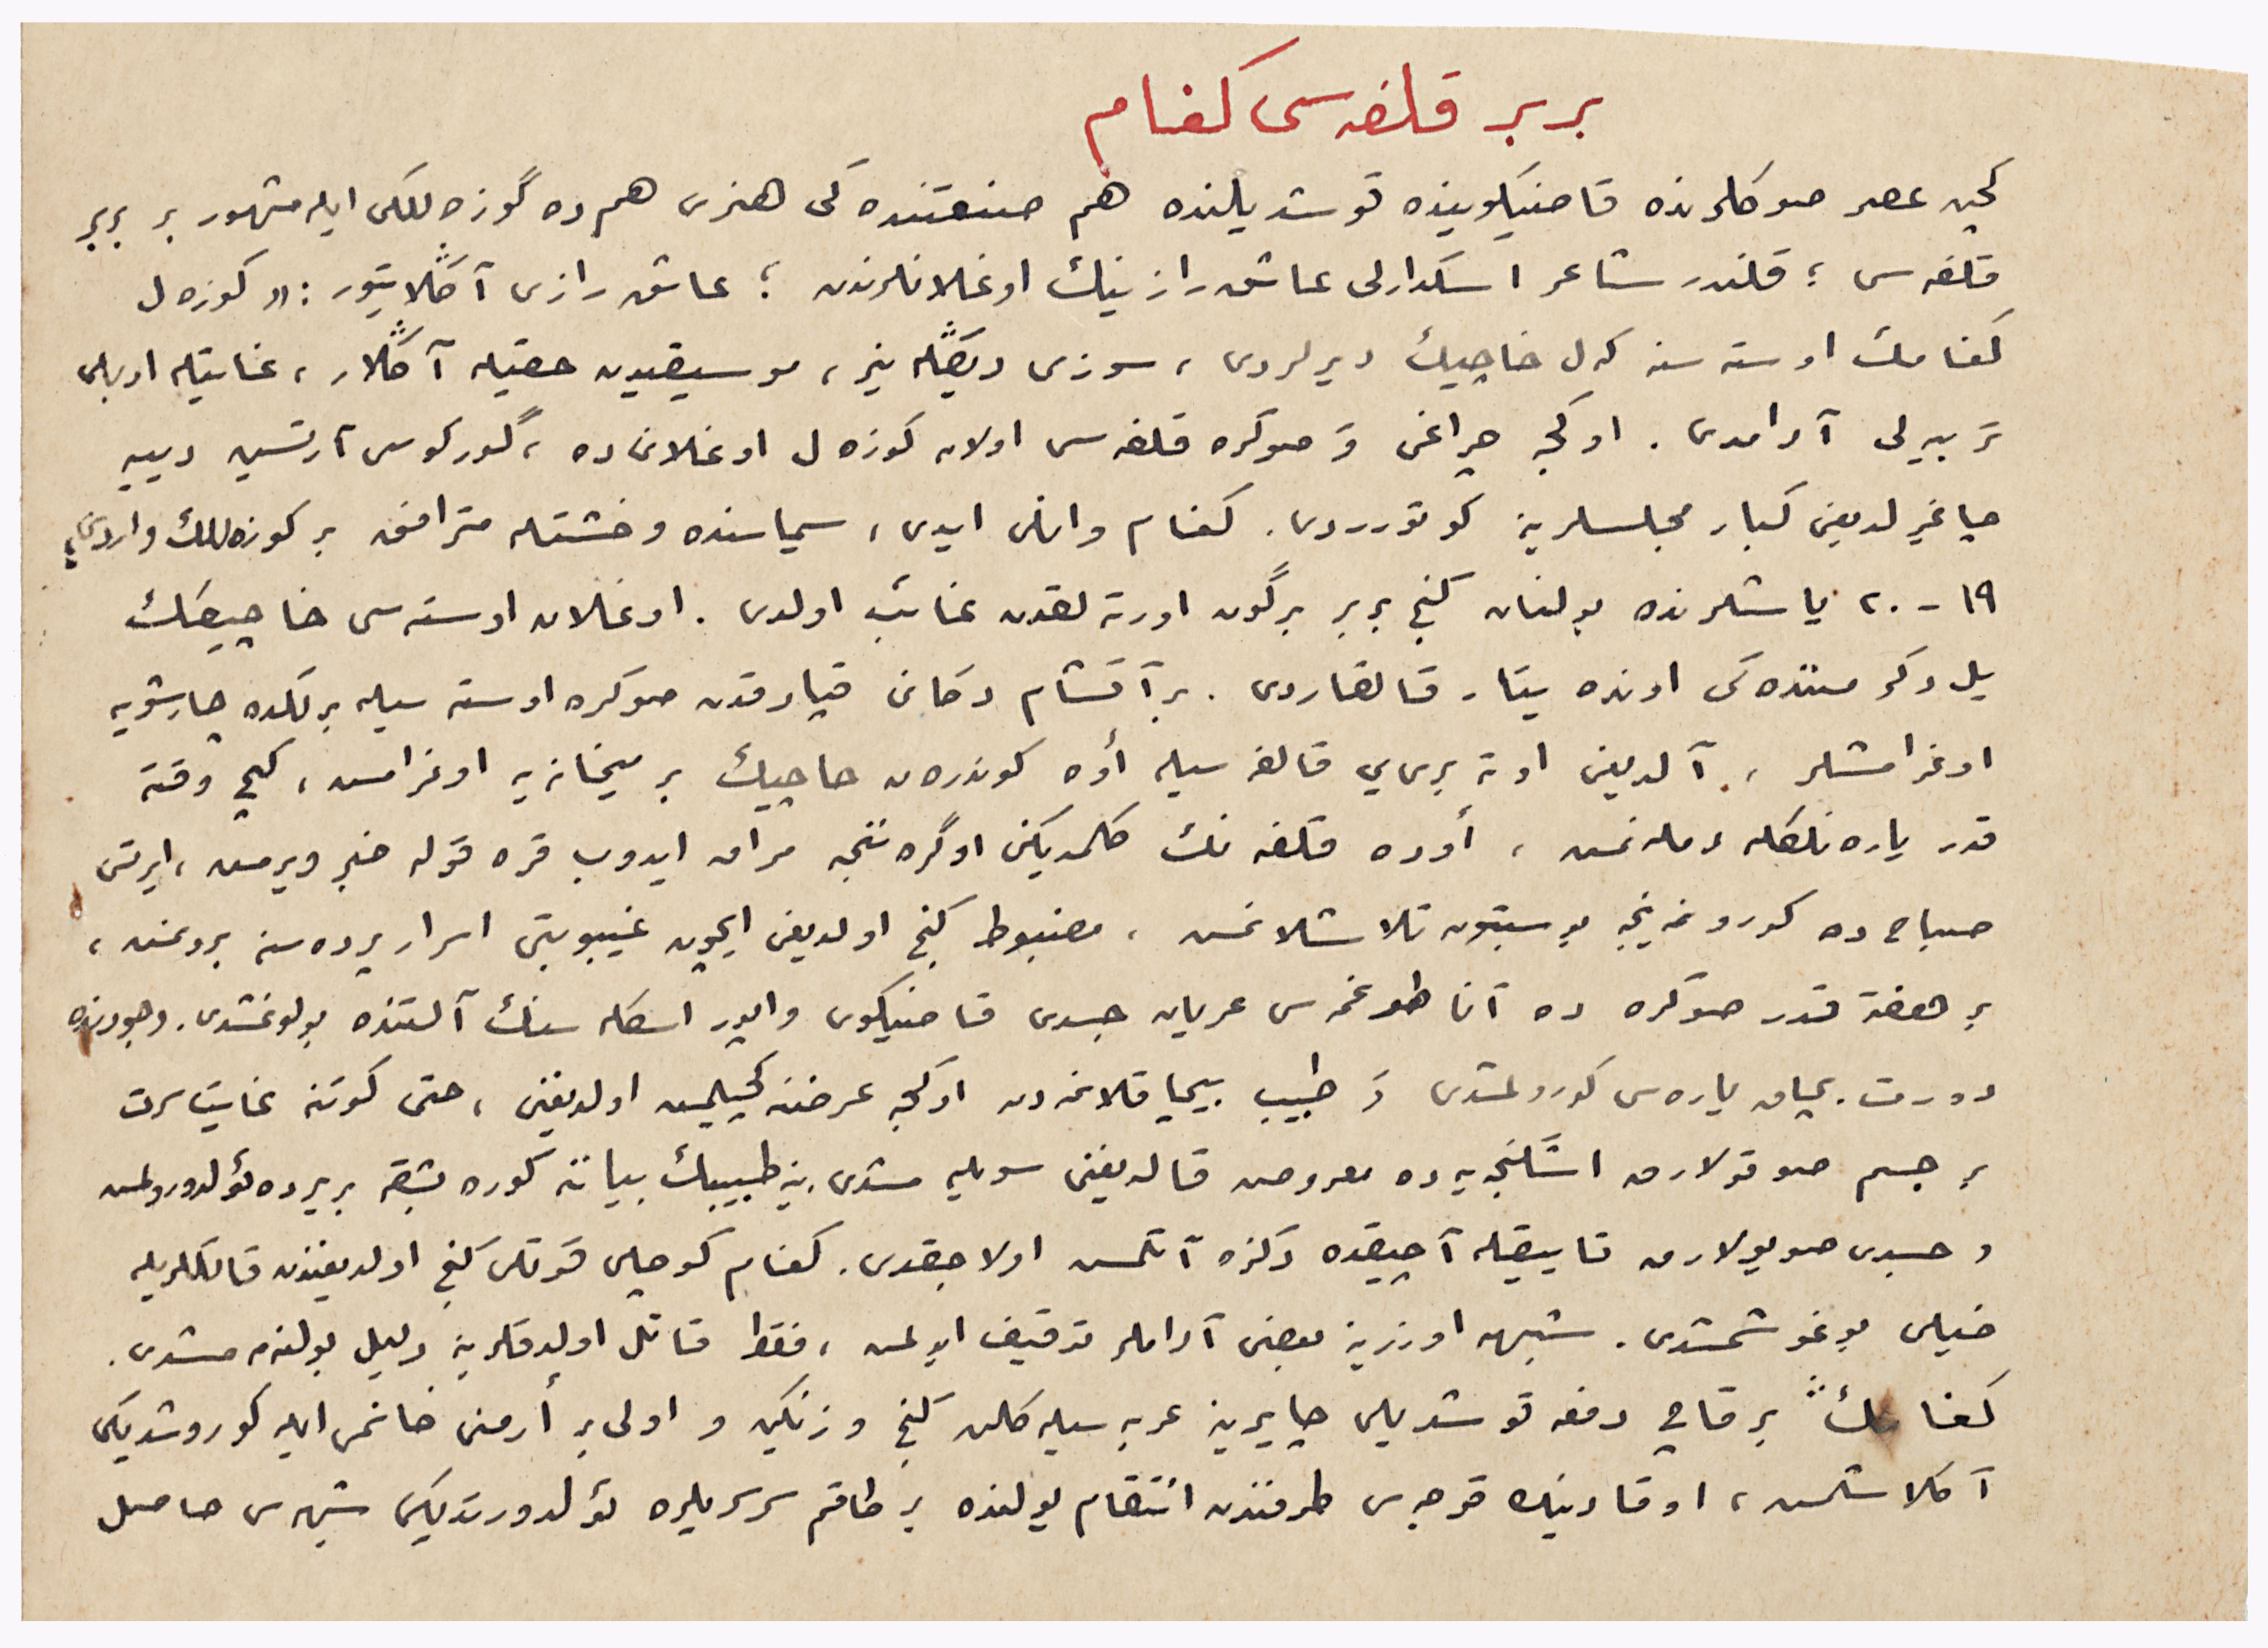 بربر قلفه‌سی كلفام
كچن عصر صوكلرنده قاضیكوینده قوشدیلنده هم صنعتنده كی هنری هم ده گوزه‌للكی ایله مشهور بر بربر
قلفه‌سی ؛ قلندر شاعر اسكدارلی عاشق رازینك اوغلانلرندن ؛ عاشق رازی آڭلاتیور : « كوزه‌ل
كلفامك اوسته‌سنه كه‌ل خاچیك دیرلردی ، سوزی دیڭله‌نیر ، موسیقیدن حقیله آڭلار ، غایتله ادبلی
تربیه‌لی آدامدی . اوكجه چراغی و صوكره قلفه‌سی اولان كوزه‌ل اوغلانی ده ، گورگوسی آرتسین دییه
چاغیرلدیغی كبار مجلسلرینه كوتورردی . كلفام وانلی ایدی ، سیماسنده وحشتله مترافق بر كوزه‌للك واردی ؛
١٩ - ٢٠ یاشلرنده بولنان كنج بربر برگون اورته‌لقدن غائب اولدی . اوغلان اوسته‌سی خاچیكك
یل دكرمننده كی اونده یتار قالقاردی . بر آقشام دكانی قپادقدن صوكره اوسته‌سیله برلكده چارشویه
اوغرامشلر ، آلدیغی اوته بری‌یی قالفه‌سیله أوه كوندره‌ن خاچیك بر میخانه‌یه اوغرامش ، كیچ وقته
قدر یارانلكله دمله‌نمش ، أوده قلفه‌نك كلمدیكنی اوگره‌ننجه مراق ایدوب قره قوله خبر ویرمش ، ایرتسی
صباح ده كورونمه‌ینجه بوسبتون تلاشلانمش ، مضبوط كنج اولدیغی ایچون غیبوبتی اسرار پرده‌سنه برونمش ،
بر هفته قدر صوكره ده آنا طوغمه‌سی عریان جسدی قاضیكوی واپور اسكله‌سنك آلتنده بولونمشدی . وجودنده
دورت بیچاق یاره‌سی كورولمشدی و طبیب بیچاقلانمه‌دن اوكجه عرضنه كچیلمش اولدیغنی ، حتی كوتنه غایت سرت
بر جسم صوقولارق اشكنجه‌یه ده معروض قالدیغنی سویله‌مشدی . ینه طبیبك بیاننه كوره بشقه بر یرده ئولدورولمش
و جسدی صویولارق قاییقله آچیقده دكزه آتلمش اولاجقدی . كلفام كوچلی قوتلی كنج اولدیغندن قاتللریله
خیلی بوغوشمشدی . شبهه اوزرینه بعضی آداملر توقیف ایدلمش ، فقط قاتل اولدقلرینه دلیل بولنه‌مه‌مشدی .
كلفامك بر قاچ دفعه قوشدیلی چایرینه عربه‌سیله كلن كنج و زنكین و اولی بر أرمنی خانمی ایله كوروشدیكی
آڭلاشلمش ، او قادینك قوجه‌سی طرفندن انتقام یولنده بر طاقم سرسریلره ئولدورتدیكی شبهه‌سی حاصل